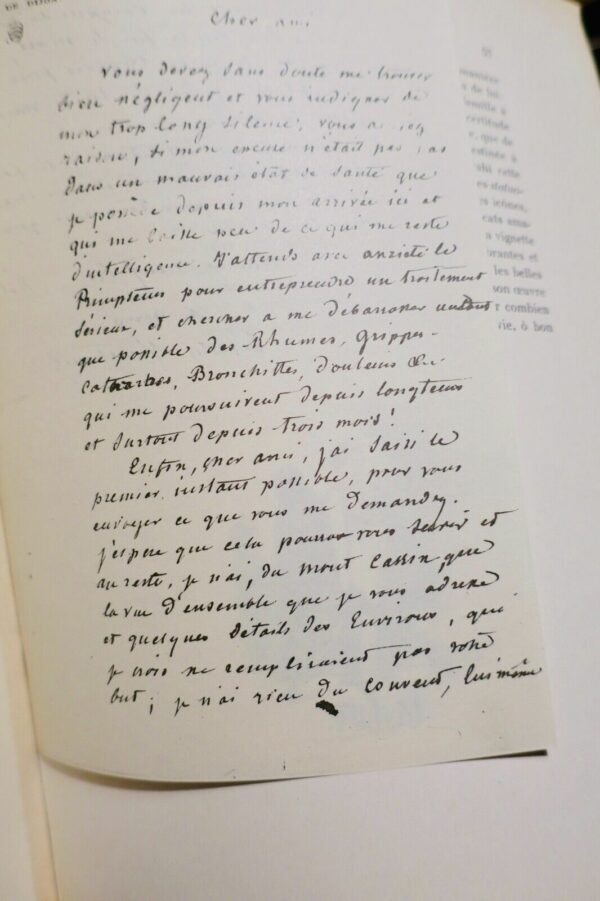 DE DIJON
Cher ami
Vous devez sans doute me trouver
bien négligent et vous indigner de
mon trop long silence, vous auriez
raison, si mon excuse n'était pas
dans un mauvais état de santé que
je possède depuis mon arrivée ici et
qui me laisse peu de ce qui me reste
d'intelligence. J'attends avec anxiété le
Printems pour entreprendre un traitement
sérieux, et chercher a me débarrasser
que possible des Rhumes, grippes,
Catharhes, Bronchittes, douleurs &c.
qui me poursuivent depuis longtems
et surtout depuis trois mois!
Enfin, cher ami, j'ai saisi le
premier instant possible, pour vous
envoyer ce que vous me demandez.
j'espère que cela pourra vous servir et
au reste, je n'ai, du Mont Cassin, que
la vue d'ensemble que je vous adresse
et quelques détails des Environs, qui
je crois ne rempliraient pas votre
but; je n'ai rien du Couvent, lui même
certitude
e, que de
cette
es icônes,
a vignette
orantes et
les belles
son œuvre
r combien
vie, ô bon